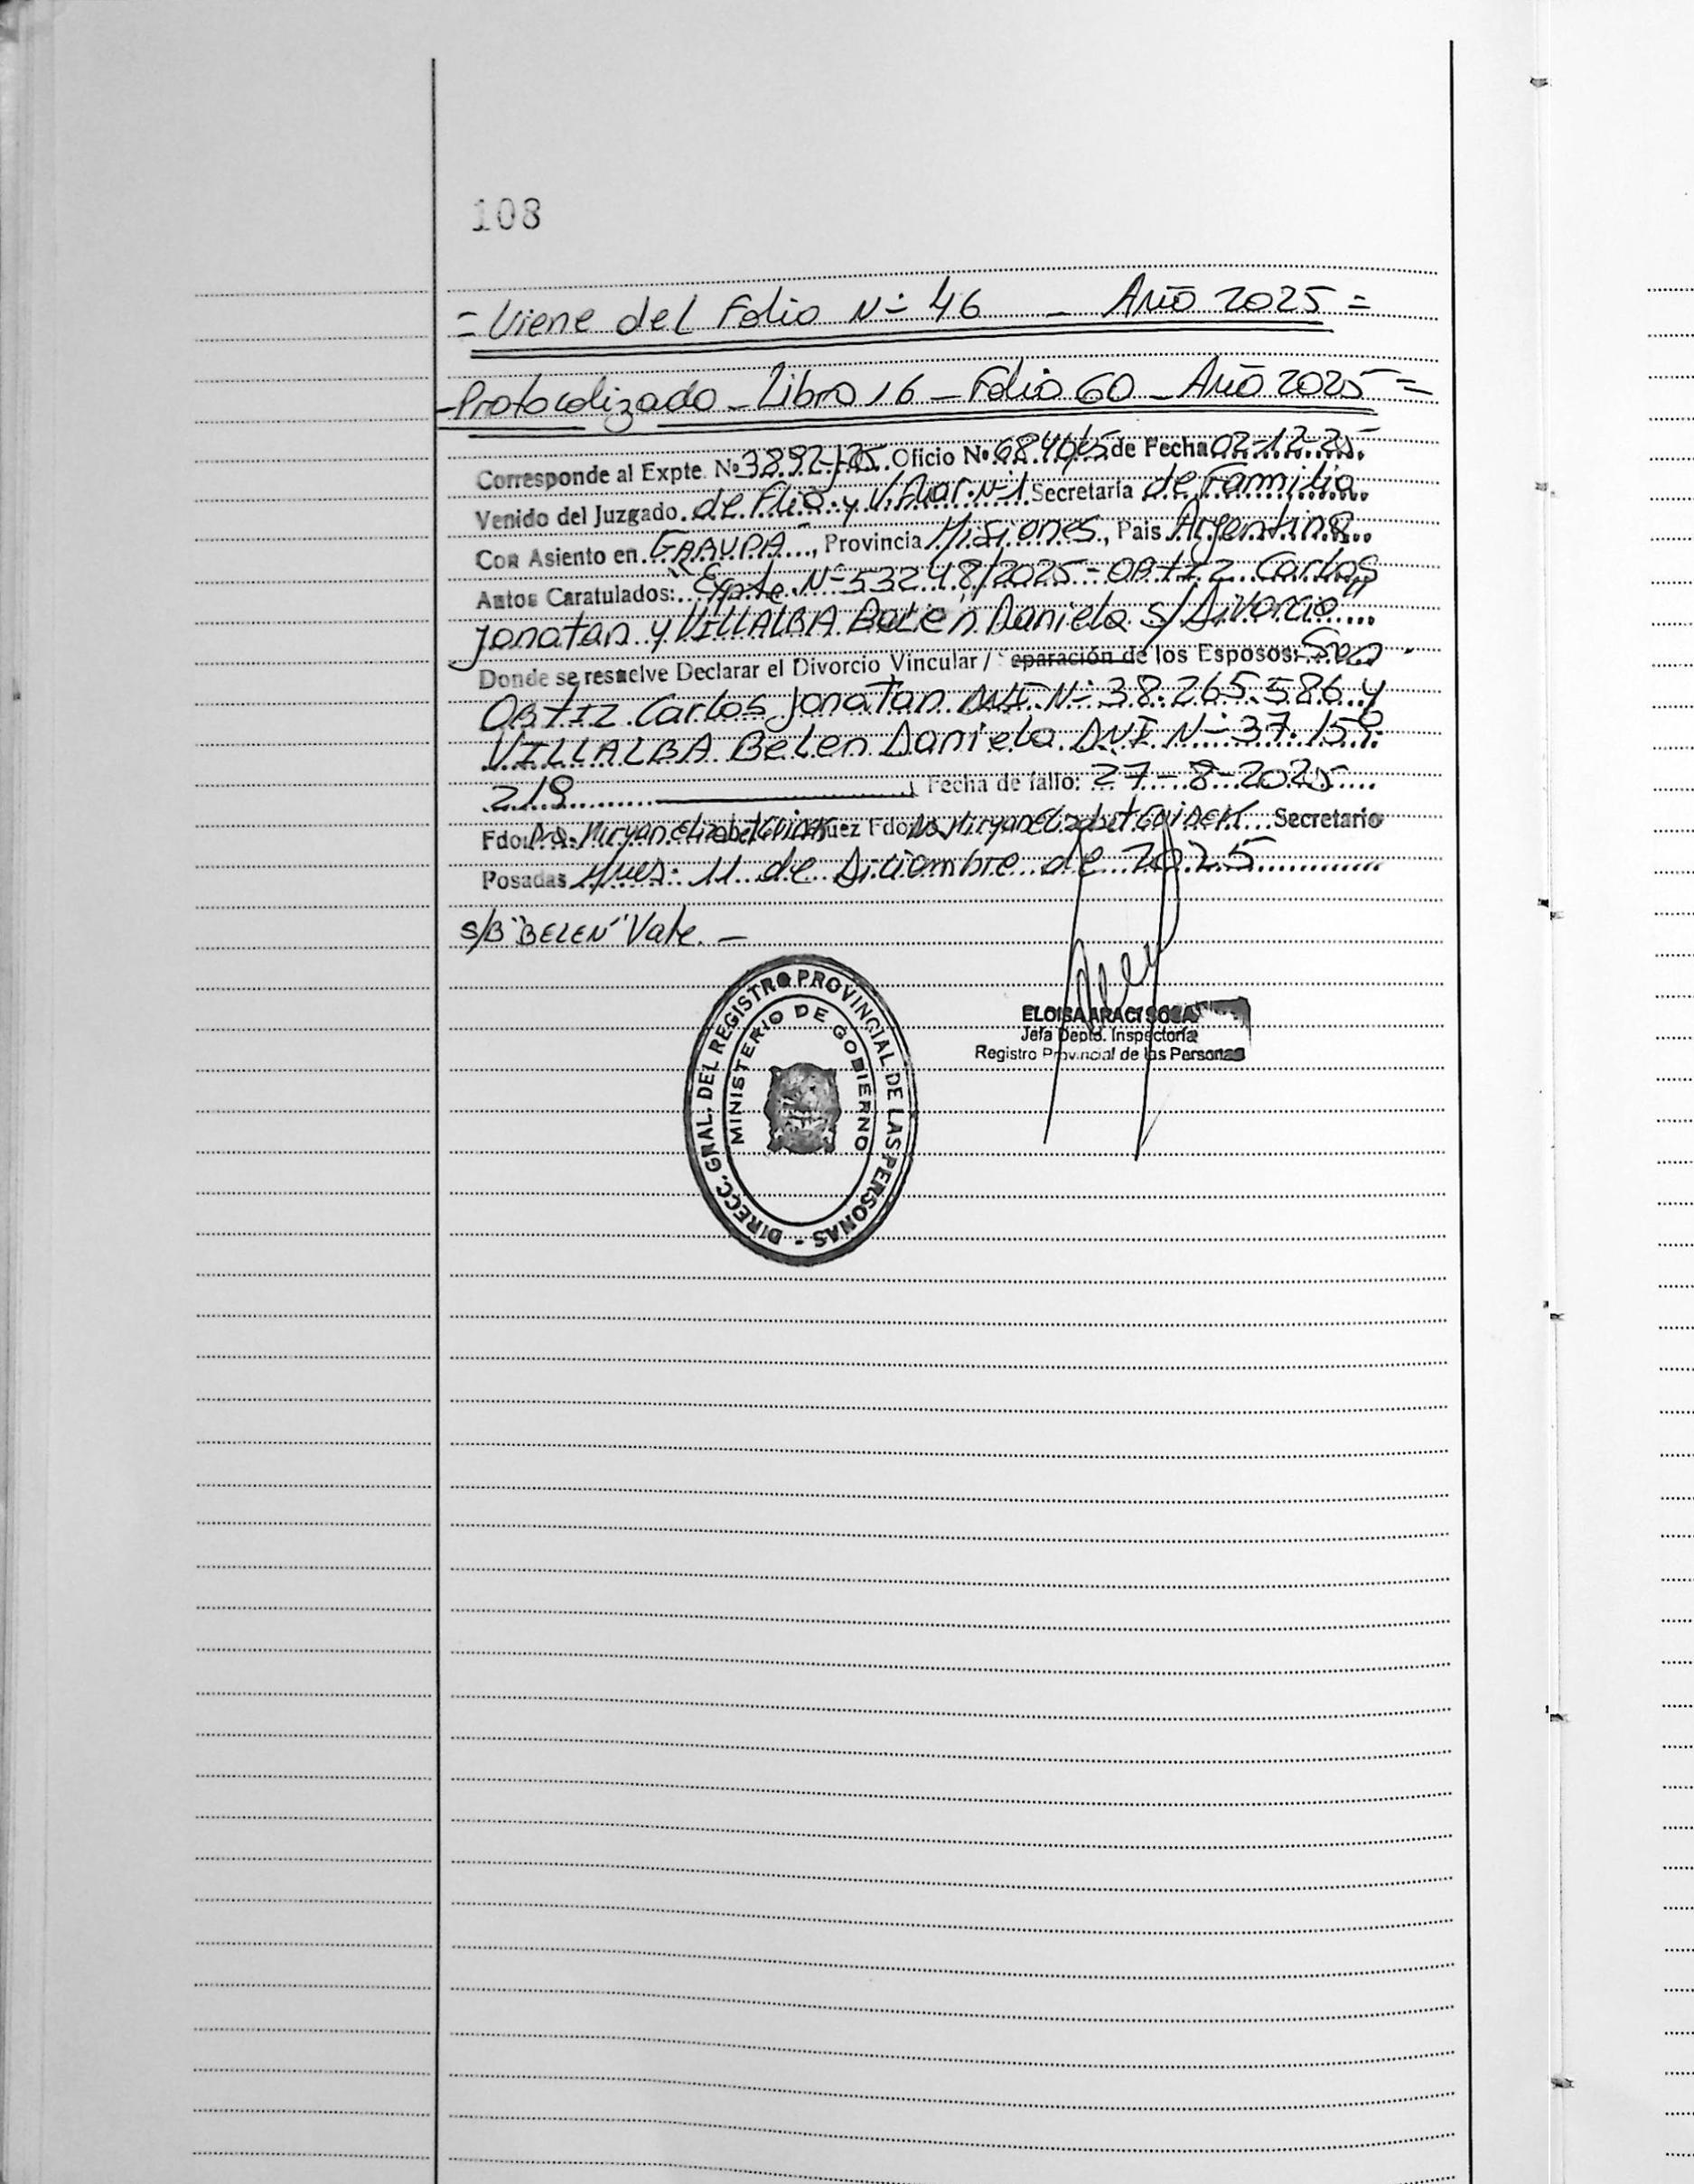 108
= Viene del Folio Nº 46 - Año 2025 =
- Protocolizado - Libro 16 - Folio 60 - Año 2025 =
Corresponde al Expte. Nº 3892-J-25. Oficio Nº 6840/25 de Fecha 02-12-25.
Venido del Juzgado de Flia. y V. Fliar. Nº 1 Secretaría de Familia
Con Asiento en GARUPA, Provincia Misiones, País Argentina
Autos Caratulados: "Expte. Nº 53248/2025 - ORTIZ Carlos
Jonatan y VILLALBA Belén Daniela s/ Divorcio"
Donde se resuelve Declarar el Divorcio Vincular / eparación de los Esposos:
ORTIZ Carlos Jonatan DNI Nº 38.265.586 y
VILLALBA Belen Daniela DNI Nº 37.159.
219 Fecha de fallo: 27-8-2025
Fdo: Dra. Miryan Elizabet Juez Fdo: Miryan Elizabet Secretario
Posadas, Mnes. 11 de Diciembre de 2025
S/B "BELEN" Vale. -
DIRECC. GRAL. DEL REGISTRO PROVINCIAL DE LAS PERSONAS -
MINISTERIO DE GOBIERNO
ELOISA ARACI SOSA
Jefa Depto. Inspectoría
Registro Provincial de las Personas